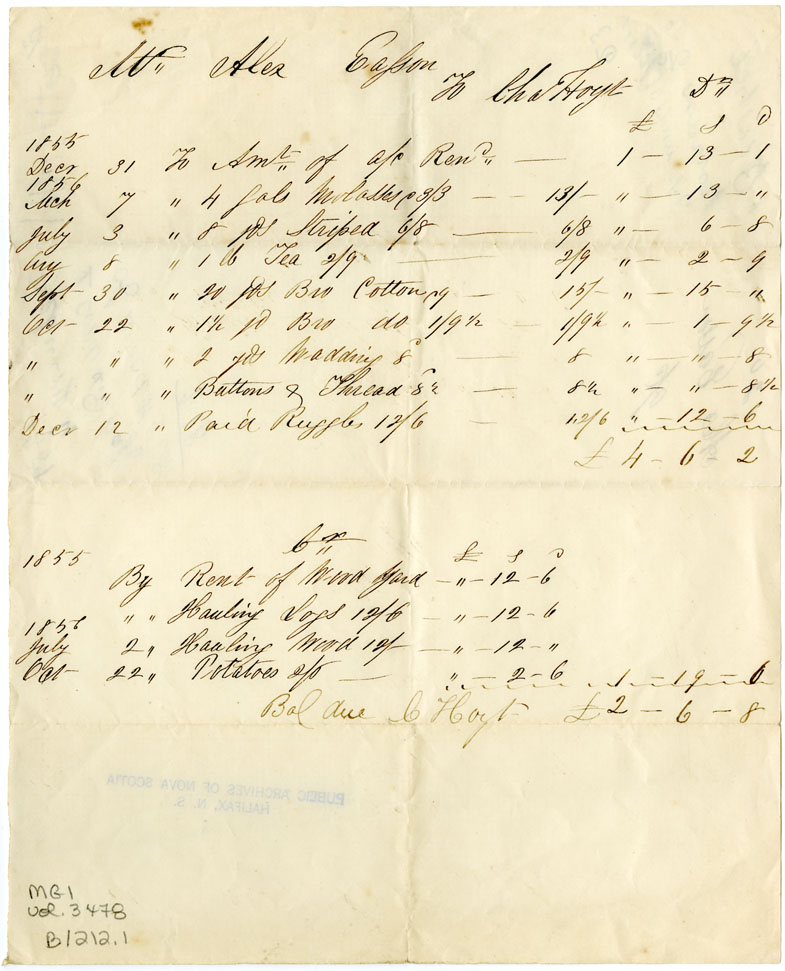 Mr. Alex Easson
To Cha Hoyt Dr
£ S D
1855
Decr 31 To Amt. of a/c Rend. — 1 — 13 — 1
1856
Mch 7 " 4 gals Molasses 3/3 — 13/- " — 13 — "
July 3 " 8 yds Striped 6/8 — 6/8 " — 6 — 8
Aug 8 " 1 lb Tea 2/9 — 2/9 " — 2 — 9
Sept 30 " 20 yds Bro Cotton 9 — 15/- " — 15 — "
Oct 22 " 1½ yd Bro do 1/9½ 1/9½ " — 1 — 9½
" " " 2 yds Wadding 8d — 8 " — " — 8
" " " Buttons & Thread 8½ — 8½ " — " — 8½
Decr 12 " Paid Ruggles 12/6 — 12/6 " — 12 — 6
£ 4 — 6 — 2
Cr
£ S D
1855
By Rent of Wood Yard — " — 12 — 6
" " Hauling Logs 12/6 — " — 12 — 6
1856
July 2 " Hauling Wood 12/- — " — 12 — "
Oct 22 " Potatoes 2/6 — " — 2 — 6 1 — 19 — 6
Bal due C Hoyt £ 2 — 6 — 8
PUBLIC ARCHIVES OF NOVA SCOTIA
HALIFAX, N. S.
MG1
vol. 3478
B/212.1